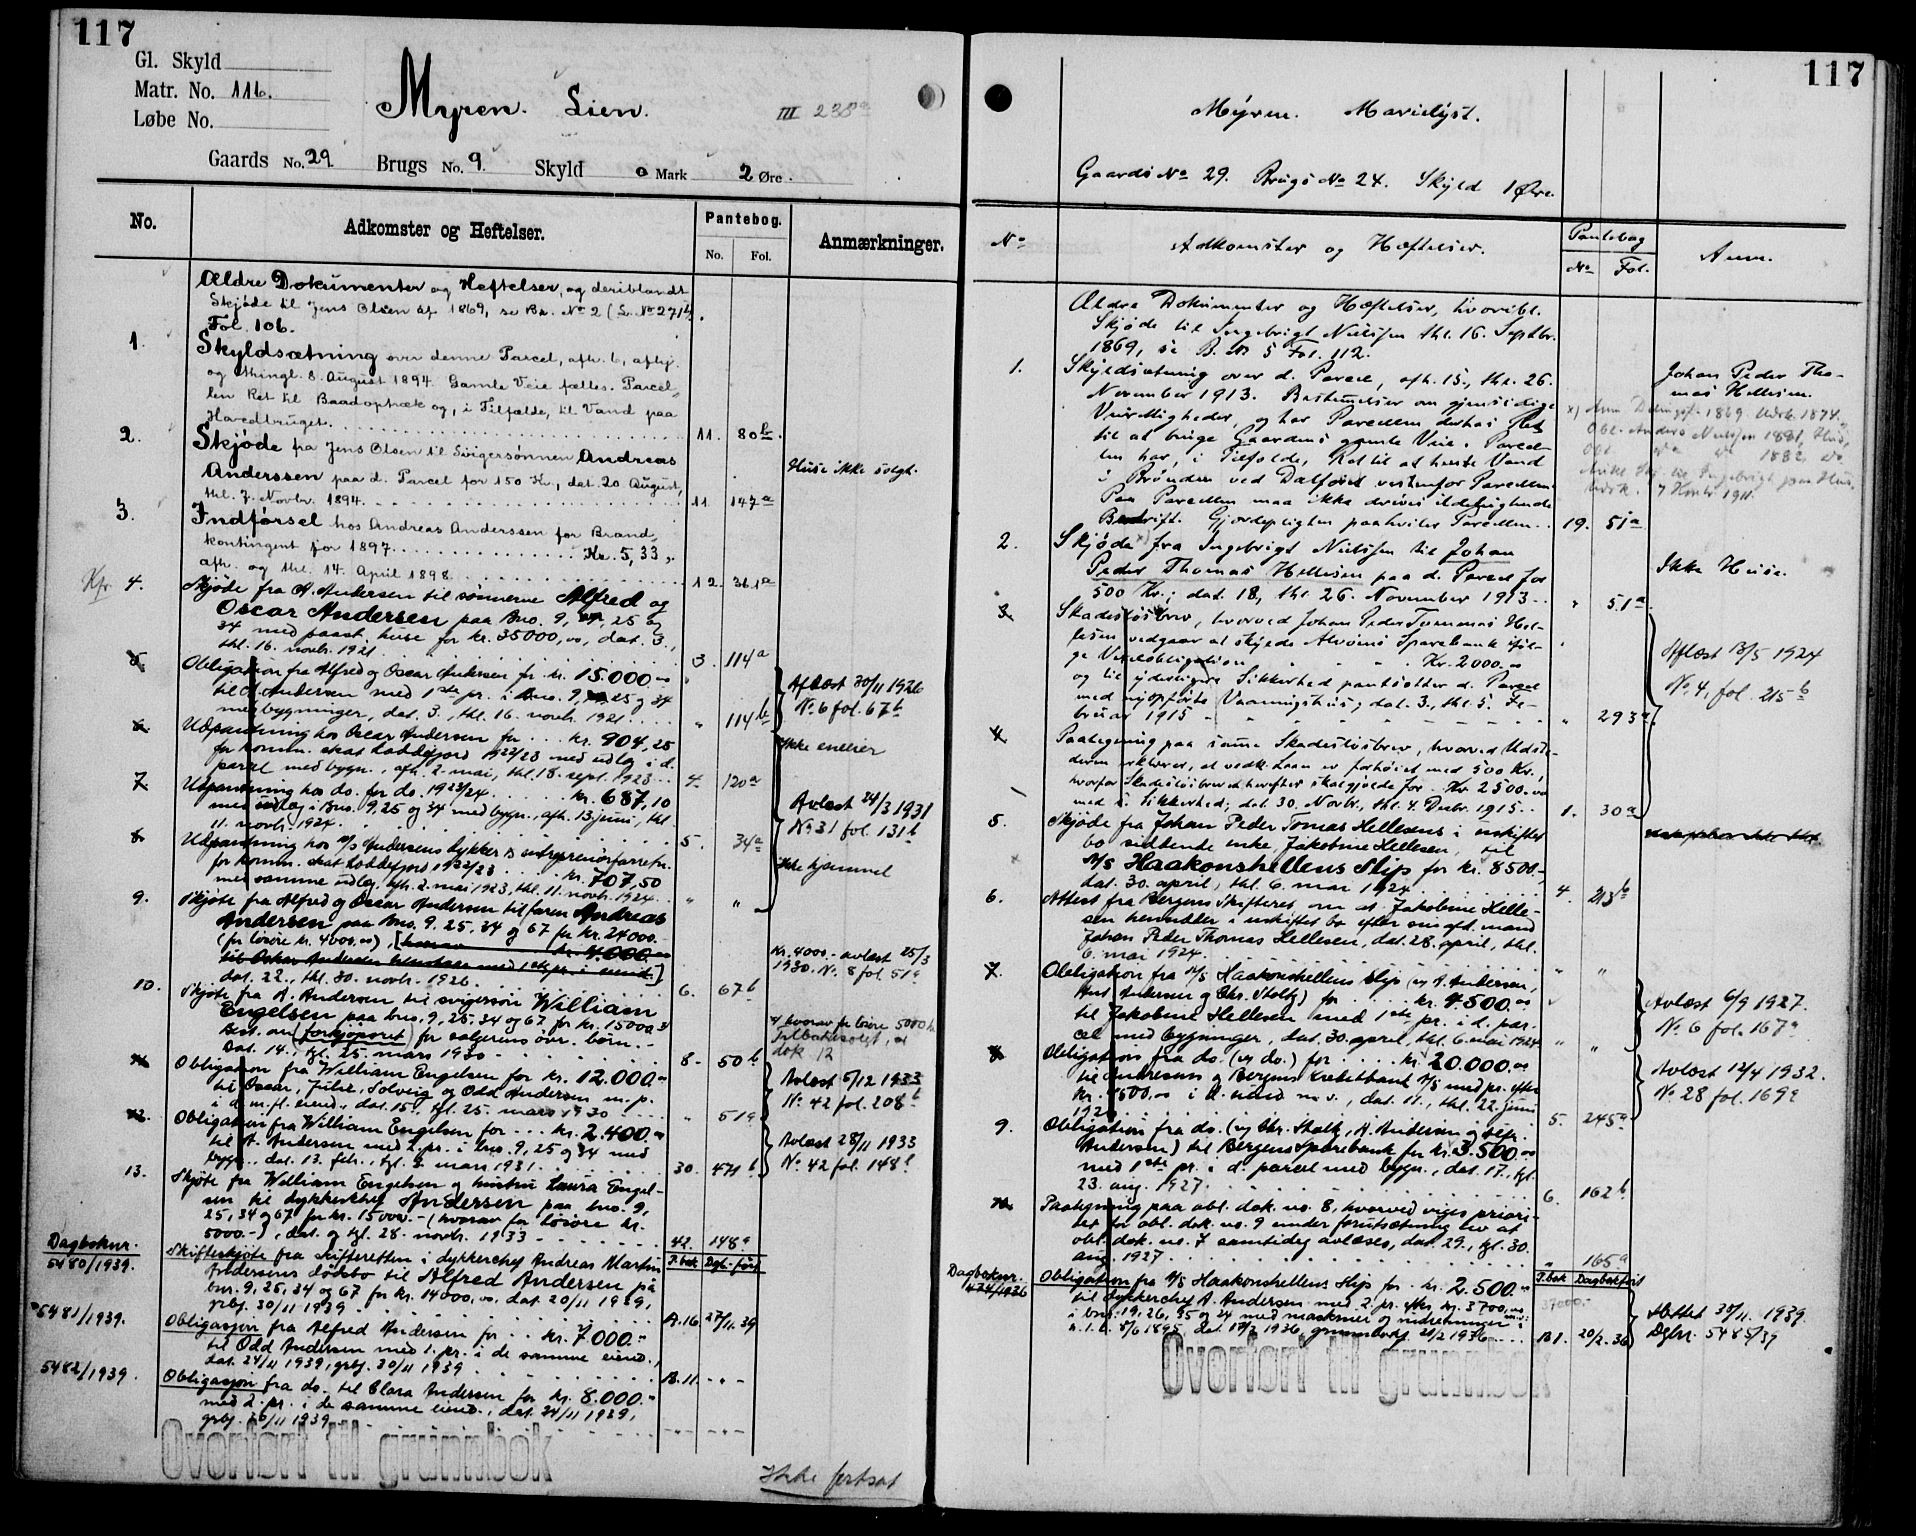 117
Gl. Skyld
Matr. No. 116.
Løbe No.
Myren. Lien.
III 238a
Gaards No. 29. Brugs No. 9. Skyld 0 Mark 2 Øre.
No.
Adkomster og Heftelser.
Pantebog.
No. Fol.
Anmærkninger.
Ældre Dokumenter og Heftelser, og deriblandt
Skjøde til Jens Olsen af 1869, se Br. No 2 (L. No 271b)
Fol. 106.
1. Skyldsætning over denne Parcel, afh. 6, afhj.
og thingl. 8. August 1894. Gamle Veie fælles. Parcel-
len Ret til Baadoptræk og, i Tilfælde, til Vand paa
Hovedbruget. 11. 80b
2. Skjøde fra Jens Olsen til Svigersønnen Andreas
Anderssen paa d. Parcel for 150 Kr., dat. 20 August,
thl. 7. Novbr. 1894. 11 147a
Huse ikke solgt.
3. Indførsel hos Andreas Anderssen for Brand-
kontingent for 1897. Kr. 5,33,
afh. og thl. 14. April 1898. 12. 361a
Kfr 4. Skjøde fra A. Andersen til sønnerne Alfred og
Oscar Andersen paa Bno. 9, 25 og
34 med paast. huse for kr. 35000,00, dat. 3.,
thl. 16. novbr. 1921 3. 114a
5. Obligation fra Alfred og Oscar Andersen for kr. 15.000.00
til A. Andersen med 1ste pr. i Bno. 9, 25 og 34
med bygninger, dat. 3., thl. 16. novbr. 1921. " 114b
Aflæst 30/11 1926
No. 6 fol. 67b
6. Udpantning hos Oscar Andersen for kr. 904,25
for komm. skat Laddefjord 1922/23 med udlæg i d.
parcel med bygn., afh. 2. mai, thl. 18. sept. 1923 4. 120a
Ikke eneeier
7. Udpantning hos do. for do. 1923/24 kr. 687,10
med udlæg i Bno. 9, 25 og 34 med bygn., afh. 13. juni, thl.
11. novbr. 1924. 5. 34a
Avlæst 24/3 1931
No. 31 fol. 131b
8. Udpantning hos A/S Andersens dykker & entreprenørforretn.
for komm. skat Laddefjord 1922/23 kr. 707,50
med samme udlæg, afh. 2. mai 1923, thl. 11. novbr. 1924. " "
Ikke hjemmel
9. Skjøte fra Alfred og Oscar Andersen til faren Andreas
Andersen paa bno. 9, 25, 34 og 67 for kr. 24000.-
(for løsøre kr. 4000,00), [hvorav kr. 4.000.00
til Oskar Andersen med 1ste pr. i eiend.]
dat. 22., thl. 30. novbr. 1926. 6. 67b
Kr. 4000.- avlæst 25/3
1930. No. 8 fol. 51a
10. Skjøte fra A. Andersen til svigersøn William
Engelsen paa bno. 9, 25, 34 og 67 for kr. 15000 x)
Best. om (forkjøpsret) for selgerens øvr. børn.-
Dat. 14., tgl. 25. mars 1930 8. 50b
x) hvorav for løsøre 5000 kr.
Tilbakesolgt, se
dok. 12
11. Obligation fra William Engelsen for kr. 12.000.00
til Oscar, Julie, Solveig og Odd Andersen m. p.
i d. m. fl. eiend., dat. 15., tgl. 25. mars 1930 " 51a
Avlæst 5/12 1933
No. 42 fol. 208b
12. Obligation fra William Engelsen for kr. 2.400.00
til A. Andersen med 2. pr. i bno. 9, 25 og 34 med
bygn., dat. 13. febr., tgl. 2. mars 1931. 30. 471b
Avlæst 28/11 1933
No. 42 fol. 148b
13. Skjøte fra William Engelsen og hustru Laura Engel-
sen til dykkerchef A. Andersen paa bno. 9,
25, 34 og 67 for kr. 15000.- (hvorav for løsøre kr.
5000.-), dat. og tgl. 28. novbr. 1933 42. 148a
Dagboknr. P.bok Dgb.-ført
5480/1939. Skifteskjøte fra skifteretten i dykkerchef Andreas Martin
Andersens dødsbo til Alfred Andersen på
bnr. 9, 25, 34 og 67 for kr. 14000,00, dat. 20/11 1939,
grbj. 30/11 1939 A.16. 27/11.39
5481/1939. Obligasjon fra Alfred Andersen for kr. 7000.-
til Odd Andersen med 1. pr. i de samme eiend.,
dat. 24/11 1939, grbj. 30/11 1939 B.11. - " -
5482/1939. Obligasjon fra do. til Clara Andersen for kr. 8.000.-
med 2. pr. i de samme eiend., dat. 24/11 1939,
grbj. 30/11 1939 - " - - " -
Overført til grunnbok
Ikke fortsat
117
Myren. Marielyst.
Gaards No 29. Brugs No 24. Skyld 1 Øre.
No
Adkomster og Hæftelser.
Pantebog
No Fol.
Anm.
Ældre Dokumenter og Hæftelser, hvoribl.
Skjøde til Ingebrigt Nielssen thl. 16. Septbr.
1869, se B. No 5 Fol. 112.
1. Skyldsætning over d. Parcel, afh. 15., thl. 26.
November 1913. Bestemmelser om gjensidige
Veirettigheder, og har Parcellen derhos Ret
til at bruge Gaardens gamle Veie. Parcel-
len har, i Tilfælde, Ret til at hente Vand
i Brønden ved Dalføret vestenfor Parcellen.
Paa Parcellen maa ikke drives ildefrigtende
Bedrift. Gjerdepligten paahviler Parcellen. 19. 51a
Johan Peder Tho-
mas Hellesen.
2. Skjøde x) fra Ingebrigt Nielssen til Johan
Peder Thomas Hellesen paa d. Parcel for
500 Kr.; dat. 18, thl. 26. November 1913 " 51a
Ikke Huse.
3. Skadesløsbrev, hvorved Johan Peder Tommas Hel-
lesen vedgaar at skylde Alvøens Sparebank iføl-
ge Vexelobligation Kr. 2000.00
og til yderligere Sikkerhed pantsætter d. Parcel
med nyopførte Vaaningshus; dat. 3., thl. 5. Fe-
bruar 1915 " 293a
Aflæst 13/5 1924
No. 4, fol. 215b
4. Paategning paa samme Skadesløsbrev, hvorved Udste-
deren erklærer, at vedk. Laan er forhøiet med 500 Kr.,
hvorfor Skadesløsbrevet herefter skal gjælde for Kr. 2500.00
med s. Sikkerhed; dat. 30. Novbr., thl. 4. Decbr. 1915. 1. 30a
5. Skjøde fra Johan Peder Tomas Hellesens i uskiftet
bo siddende enke, Jakobine Hellesen, til
A/S Haakonshellens Slip for kr. 8500.-
dat. 30. april, thl. 6. mai 1924 4. 213b
6. Attest fra Bergens Skifteret om at Jakobine Helle-
sen hensidder i uskiftet bo efter sin afd. mand
Johan Peder Thomas Hellesen, dat. 28. april, thl.
6. mai 1924. " "
7. Obligation fra A/S Haakonshellens slip (ved A. Andersen,
Ans. Andersen og Chr. Stoltz) for kr. 4500.00
til Jakobine Hellesen med 1ste pr. i d. par-
cel med bygninger, dat. 30. april, thl. 6. mai 1924 " "
Avlæst 6/9 1927.
No. 6 fol. 167a
8. Obligation fra do. (ved do.) for kr. 20.000.00
til Andresens og Bergens Kreditbank A/S med pr. efter
kr. 4500,00 i d. eiend. m. v., dat. 17., thl. 22. juni
1925. 5. 245a
Avlæst 12/4 1932.
No. 28 fol. 169a
9. Obligation fra do. (ved Chr. Stoltz, A. Andersen og Alfr.
Andersen) til Bergens Sparebank for kr. 3.500.00
med 1ste pr. i d. parcel med bygn., dat. 17., tgl.
23. aug. 1927. 6. 162b
10. Paategning paa obl. dok. no. 8, hvorved viges priori-
tet for obl. dok. no. 9 under forutsætning av at
obl. dok. no. 7 samtidig avlæses, dat. 29., tgl. 30.
aug. 1927 " 165a
Dagboknr. P.bok Dagbokført
474/1936 Obligation fra A/S Haakonshellens Slip for kr. 2.500.00
til dykkerchef A. Andersen med 2. pr. efter kr. 3700,00
i bno. 19, 26, 35 og 24 med maskiner og indretninger i
h. t. l. 8/6 1895, dat. 19/2 1936, grunnbokf. 20/2 1936 B1. 20/2.36
37000.-
Slettet 30/11 1939.
Dgbnr. 5485/39
Overført til grunnbok